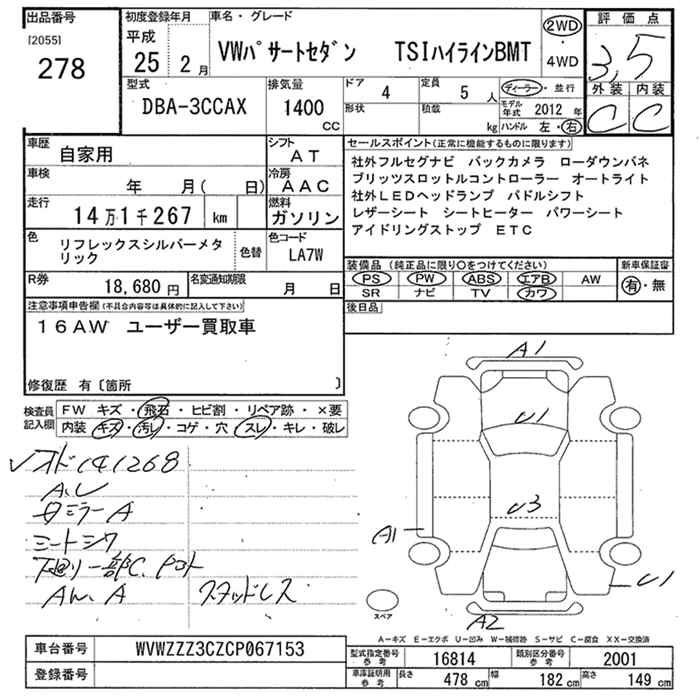 出品番号
[2055]
278
初度登録年月
平成
25 2 月
車名・グレード
VWパサートセダン TSIハイラインBMT
2WD
・
4WD
評価点
3,5
外装 内装
C C
型式
DBA-3CCAX
排気量
1400
CC
ドア 4
定員 5 人
形状
積載 kg
ディーラー・並行
モデル年式 2012 年
ハンドル 左・右
車歴
自家用
シフト
AT
車検
年 月( 日)
冷房
AAC
走行
14万1千267 km
燃料
ガソリン
色
リフレックスシルバーメタ
リック
色替
色コード
LA7W
R券
18,680 円
名変通知期限
月 日
セールスポイント(正常に機能するものに限ります)
社外フルセグナビ バックカメラ ローダウンバネ
ブリッツスロットルコントローラー オートライト
社外LEDヘッドランプ パドルシフト
レザーシート シートヒーター パワーシート
アイドリングストップ ETC
装備品(純正品に限り○をつけてください)
PS PW ABS エアB AW
SR ナビ TV カワ
新車保証書
有・無
後日品
注意事項申告欄(不具合内容等は具体的に記入して下さい)
16AW ユーザー買取車
修復歴 有〔箇所 〕
検査員
記入欄
FW キズ・飛石・ヒビ割・リペア跡・×要
内装 キズ・汚レ・コゲ・穴・スレ・キレ・破レ
✓オド141268
A.U
ミラーA
シートシワ
下廻り一部C.
A
スタッドレス
A1
U1
U3
A1
U1
A2
スペア
A-キズ E-エクボ U-凹み W-補修跡 S-サビ C-腐食 XX-交換済
車台番号
WVWZZZ3CZCP067153
登録番号
型式指定番号
参考
16814
類別区分番号
参考
2001
車庫証明用
参考
長さ 478 cm 幅 182 cm 高さ 149 cm